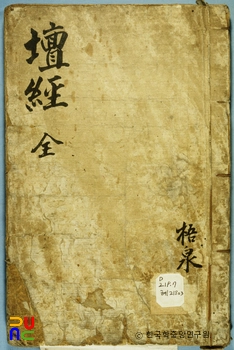 壇經
全
梧泉
한국학중앙연구원